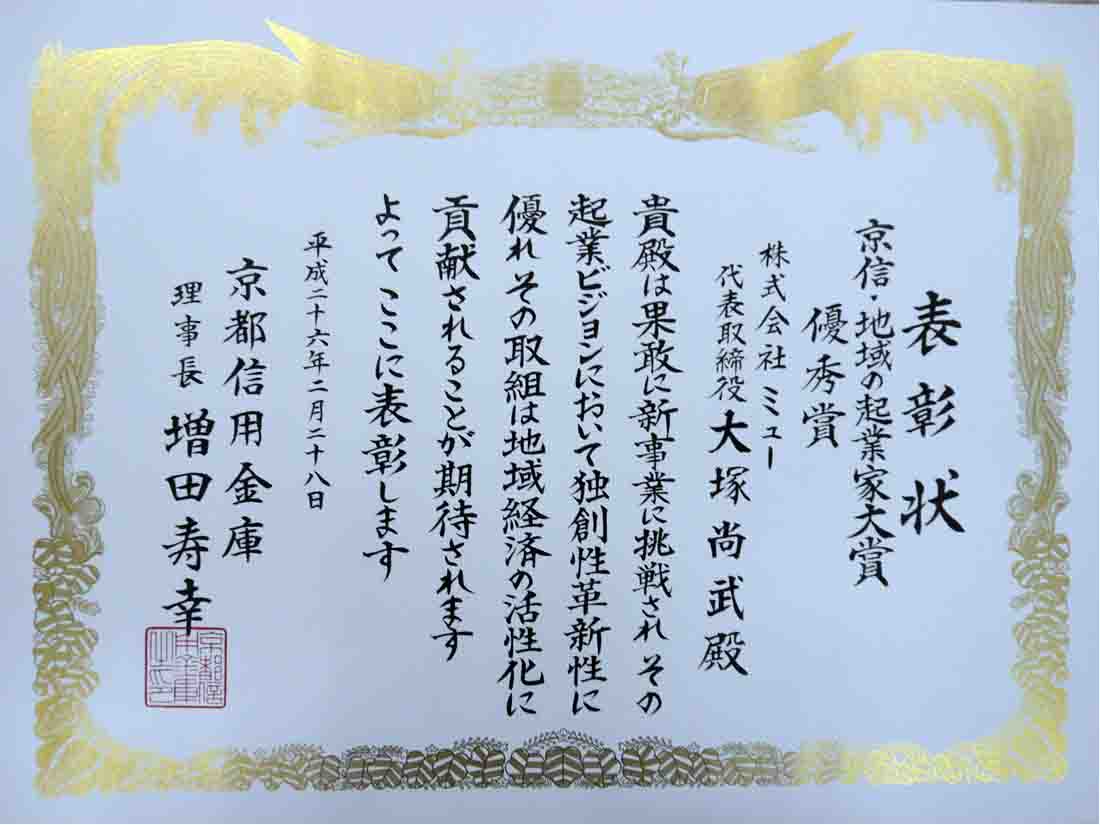 表彰状
京信・地域の起業家大賞
優秀賞
株式会社 ミュー
代表取締役 大塚尚武殿
貴殿は果敢に新事業に挑戦され その
起業ビジョンにおいて独創性革新性に
優れ その取組は地域経済の活性化に
貢献されることが期待されます
よって ここに表彰します
平成二十六年二月二十八日
京都信用金庫
理事長 増田寿幸